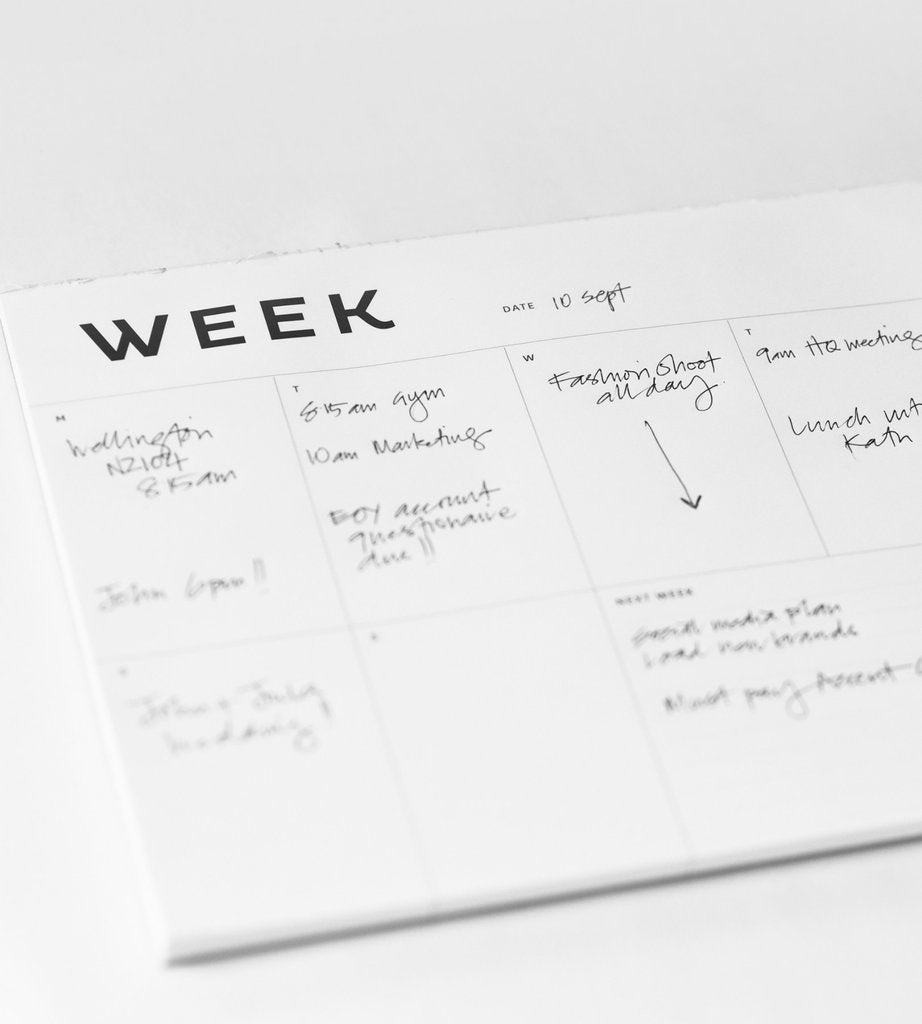 WEEK
DATE 10 Sept
M
Wellington
NZ104
8 15am
John 6pm!!
T
8 15am Gym
10am Marketing
EOY account
questionaire
due!!
W
Fashion Shoot
all day.
T
9am HQ meeting
Lunch
Kath
S
John + July
wedding!
S
NEXT WEEK
Social media plan
Load new brands
Must pay